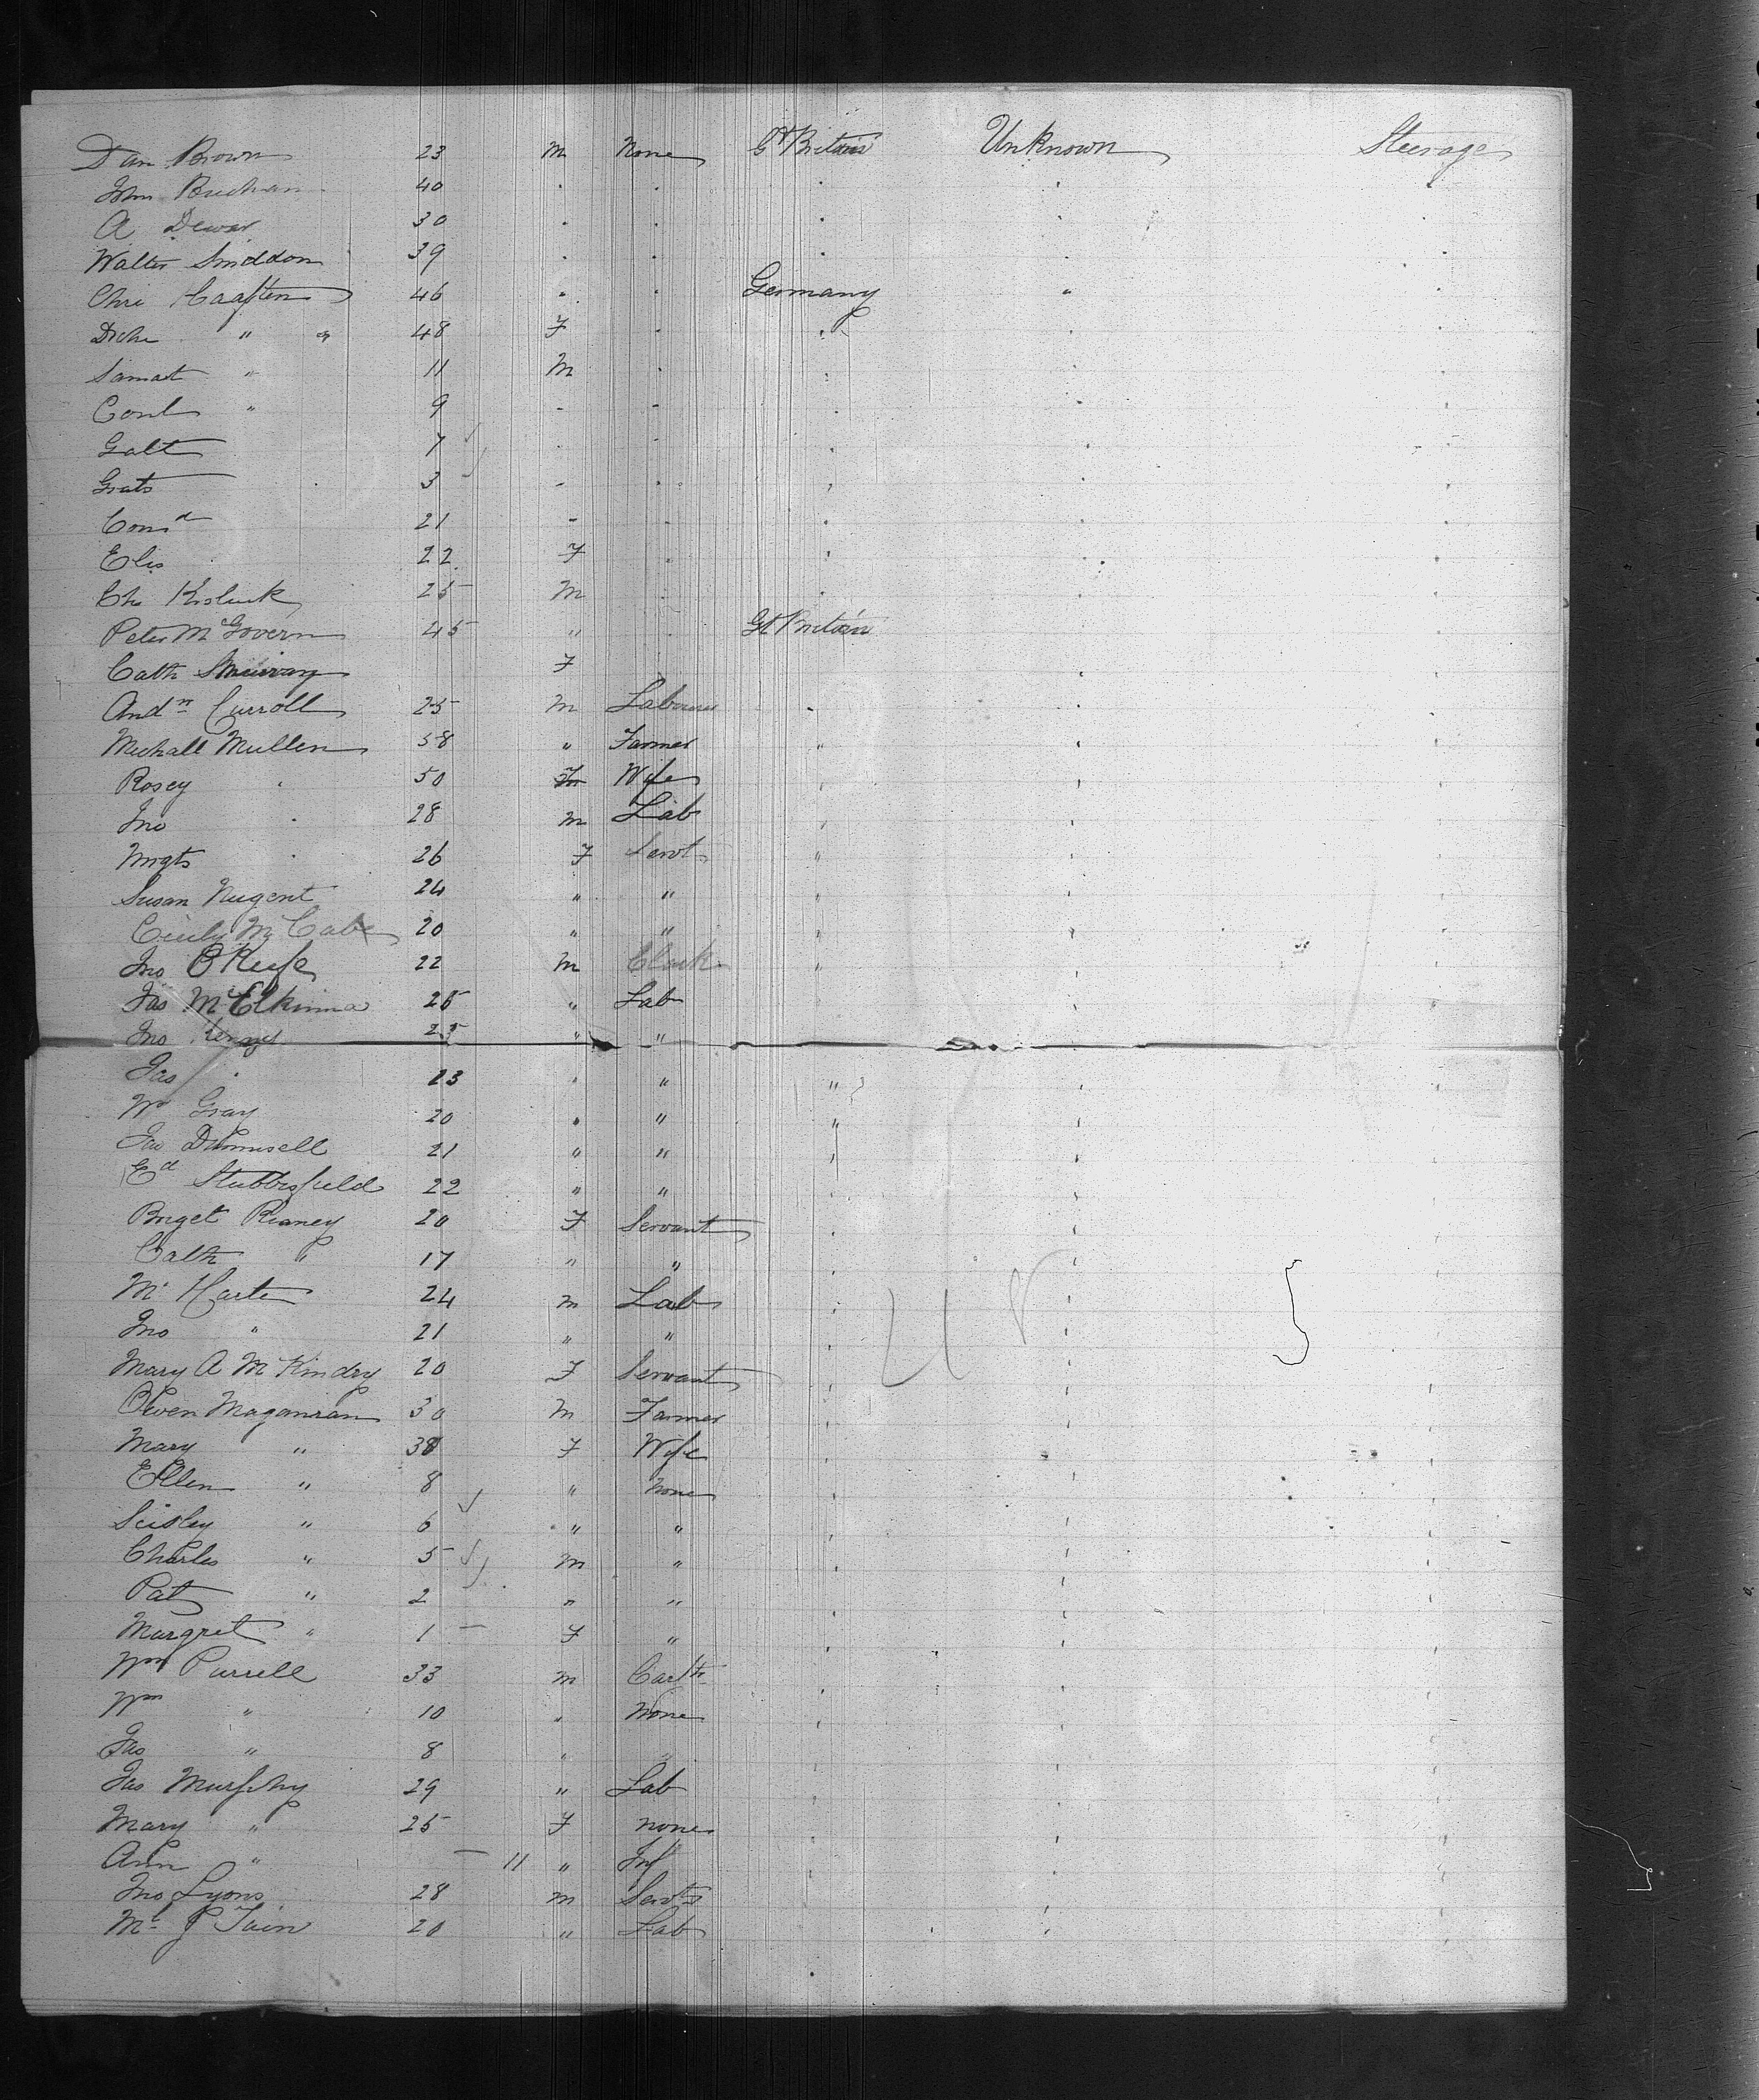 Dan Brown 23 M None Gt Britain Unknown Steerage
Jhn Buchan 40 . . . . .
A Dewar 30 . . . . .
Walter Snuddon 39 . . . . .
Chri Haaften 46 . . Germany " .
" " 48 F . . . .
" 11 M . . . .
" 9 - - . . .
Galt 7 . . . . .
Grats 3 - . . . .
21 - . . . .
Elis 22 F . . . .
Chs 25 M . . . .
Peter McGovern 45 " . Gt Britain
Cath F
Andw Curroll 25 M Labourer . . .
Michall Mullen 58 " Farmer " . .
Rosey " 50 F Wife " . .
Jno " 28 M Lab " . .
Mrgts " 26 F Servt " . .
Susan Nugent 24 " " " . .
Cicily McCabe 20 " " " . .
Jno OKeefe 22 M Clerk " . .
Jas McElkinna 25 " Lab
Jno Kenny 25 " "
Jas " 23 " " " . .
Wm Gray 20 " " " . .
Jas 21 " " " . .
Ed Stubbsfield 22 " " " . .
Briget Reaney 20 F Servant " . .
Cath " 17 " " " . .
Ml Harte 24 M Lab " . .
Jno " 21 " " " . .
Mary A McKindry 20 F Servant " . .
Owen Magauran 30 M Farmer " . .
Mary " 38 F Wife " . .
Ellen " 8 " None " . .
Scisley " 6 " " " . .
Charles " 5 M " " . .
Pat " 2 " " " . .
Margret " 1 - F " " . .
Wm Purrell 33 M " . .
Wm " 10 " None " . .
Jas " 8 " " " . .
Jas Murphy 29 " Lab " . .
Mary " 25 F None " . .
Ann " - 11 " Inf " . .
Jno Lyons 28 M Servt " . .
20 " Lab " . .